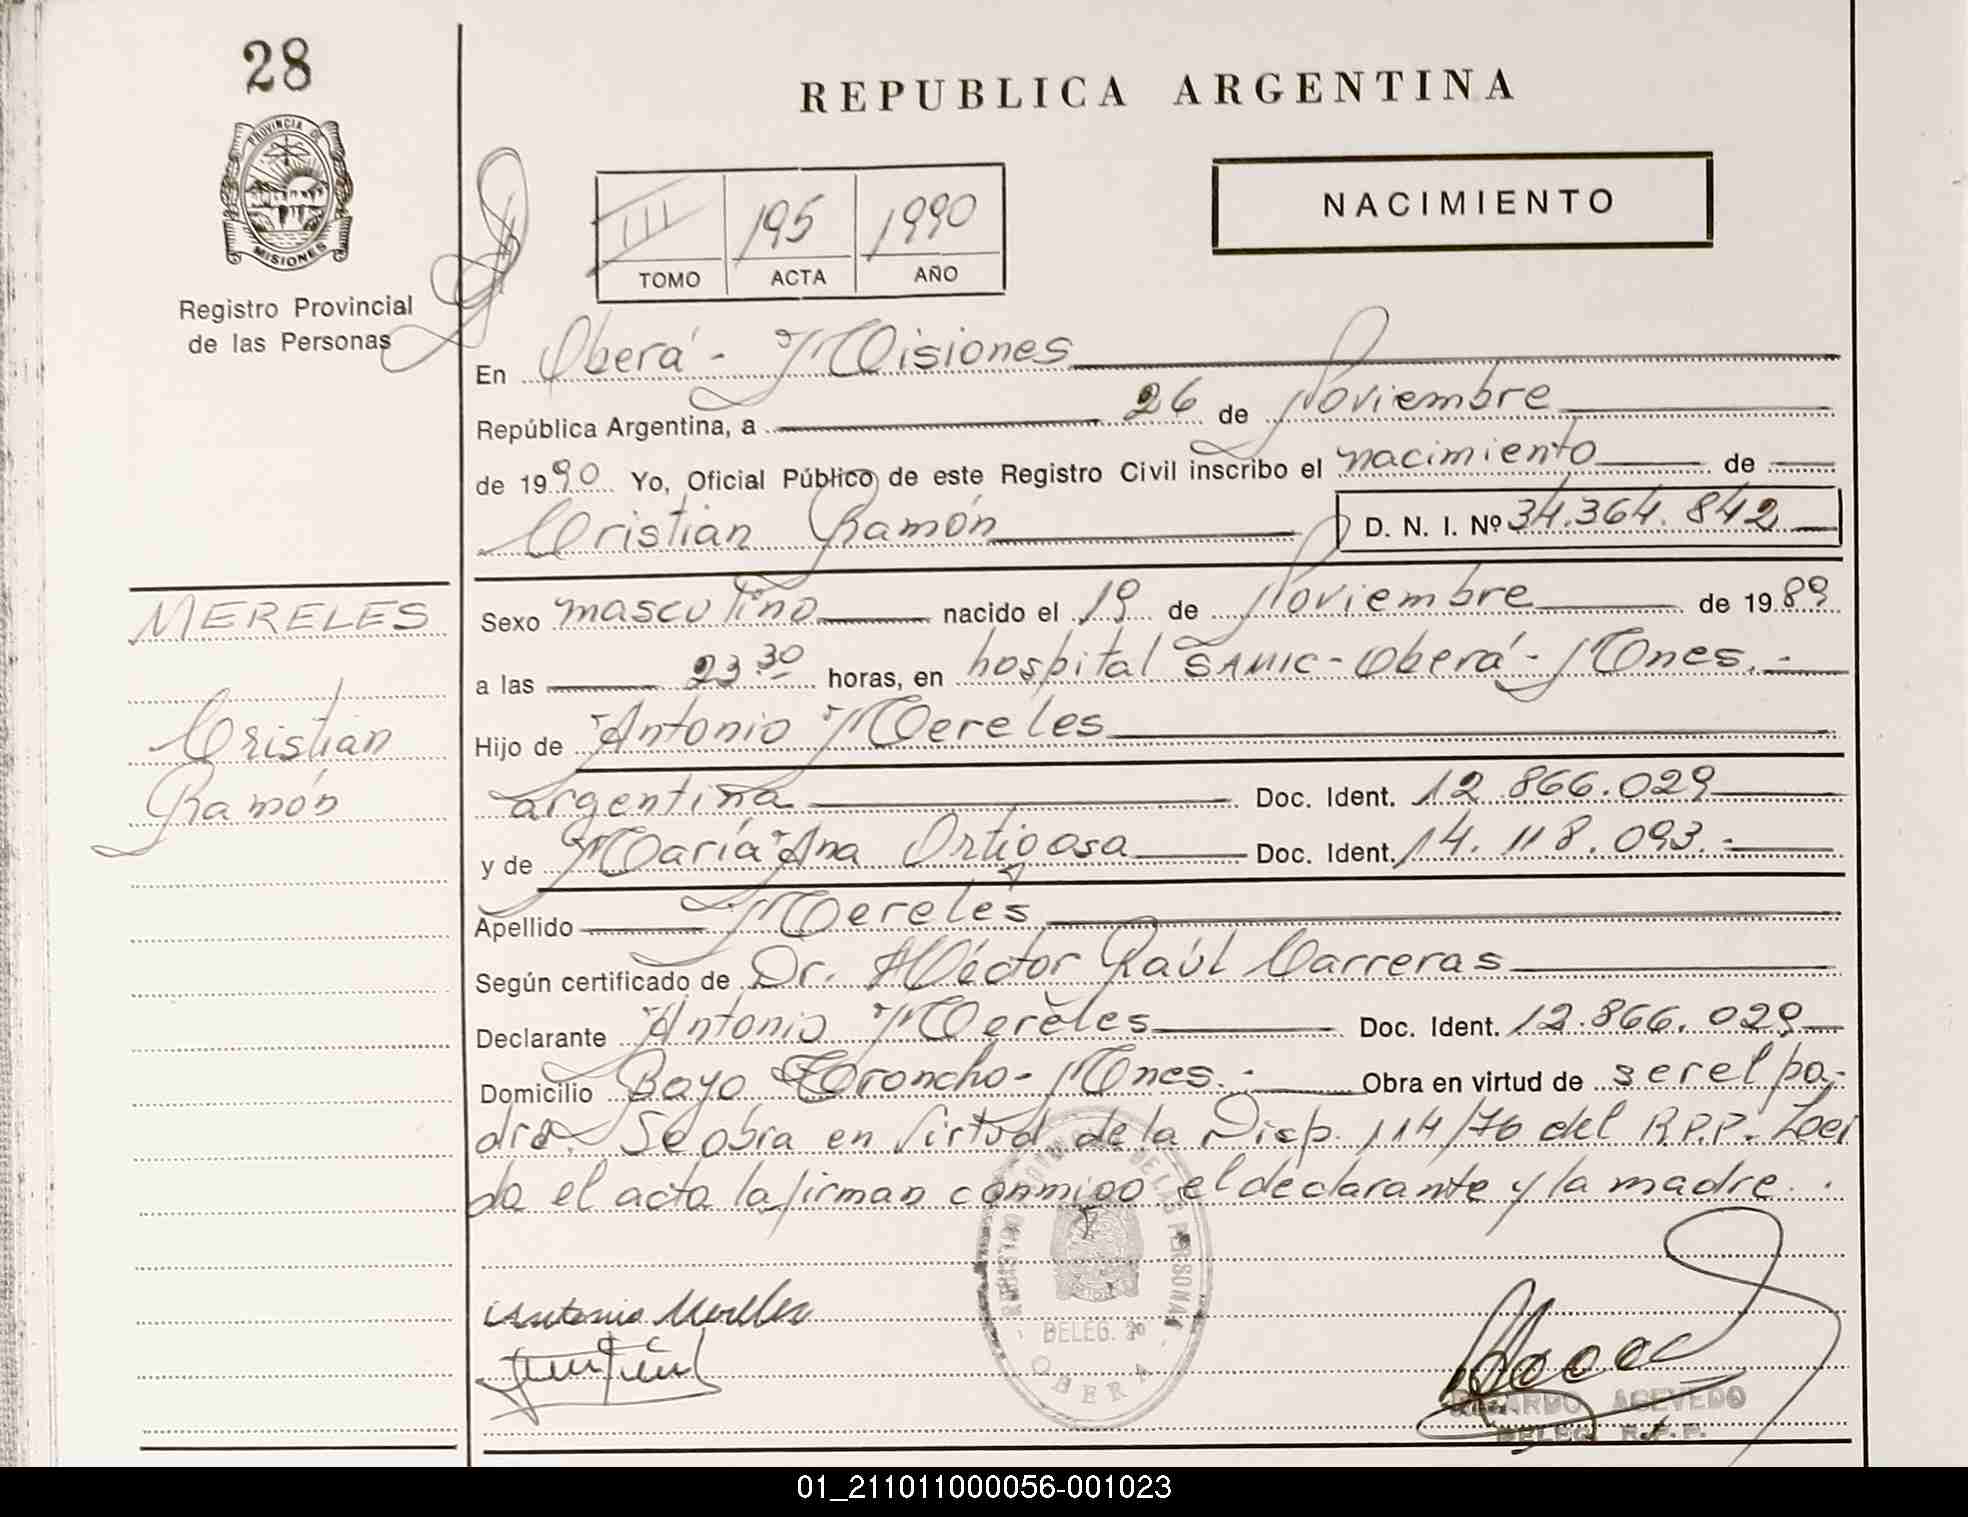 28
PROVINCIA DE
MISIONES
Registro Provincial
de las Personas
REPUBLICA ARGENTINA
III 195 1990
TOMO ACTA AÑO
NACIMIENTO
En Oberá - Misiones
República Argentina, a 26 de Noviembre
de 1990 Yo, Oficial Público de este Registro Civil inscribo el nacimiento de
Cristian Ramón D. N. I. Nº 34.364.842
MERELES
Cristian
Ramón
Sexo masculino nacido el 19 de Noviembre de 1989
a las 23 30 horas, en hospital SAMIC - Oberá - Mnes. -
Hijo de Antonio Mereles
argentina Doc. Ident. 12.866.029
y de María Ana Ortigosa Doc. Ident. 14.118.093.-
Apellido Mereles
Según certificado de Dr. Héctor Raúl Carreras
Declarante Antonio Mereles Doc. Ident. 12.866.029
Domicilio Bayo Troncho - Mnes. - Obra en virtud de ser el pa-
dre. Se obra en virtud de la Disp. 114/76 del R.P.P. Leí
da el acta la firman conmigo el declarante y la madre. .
Antonio Mereles
REGISTRO PROVINCIAL DE LAS PERSONAS
DELEG.
OBERA
RICARDO ACEVEDO
DELEG. R.P.P.
01_211011000056-001023